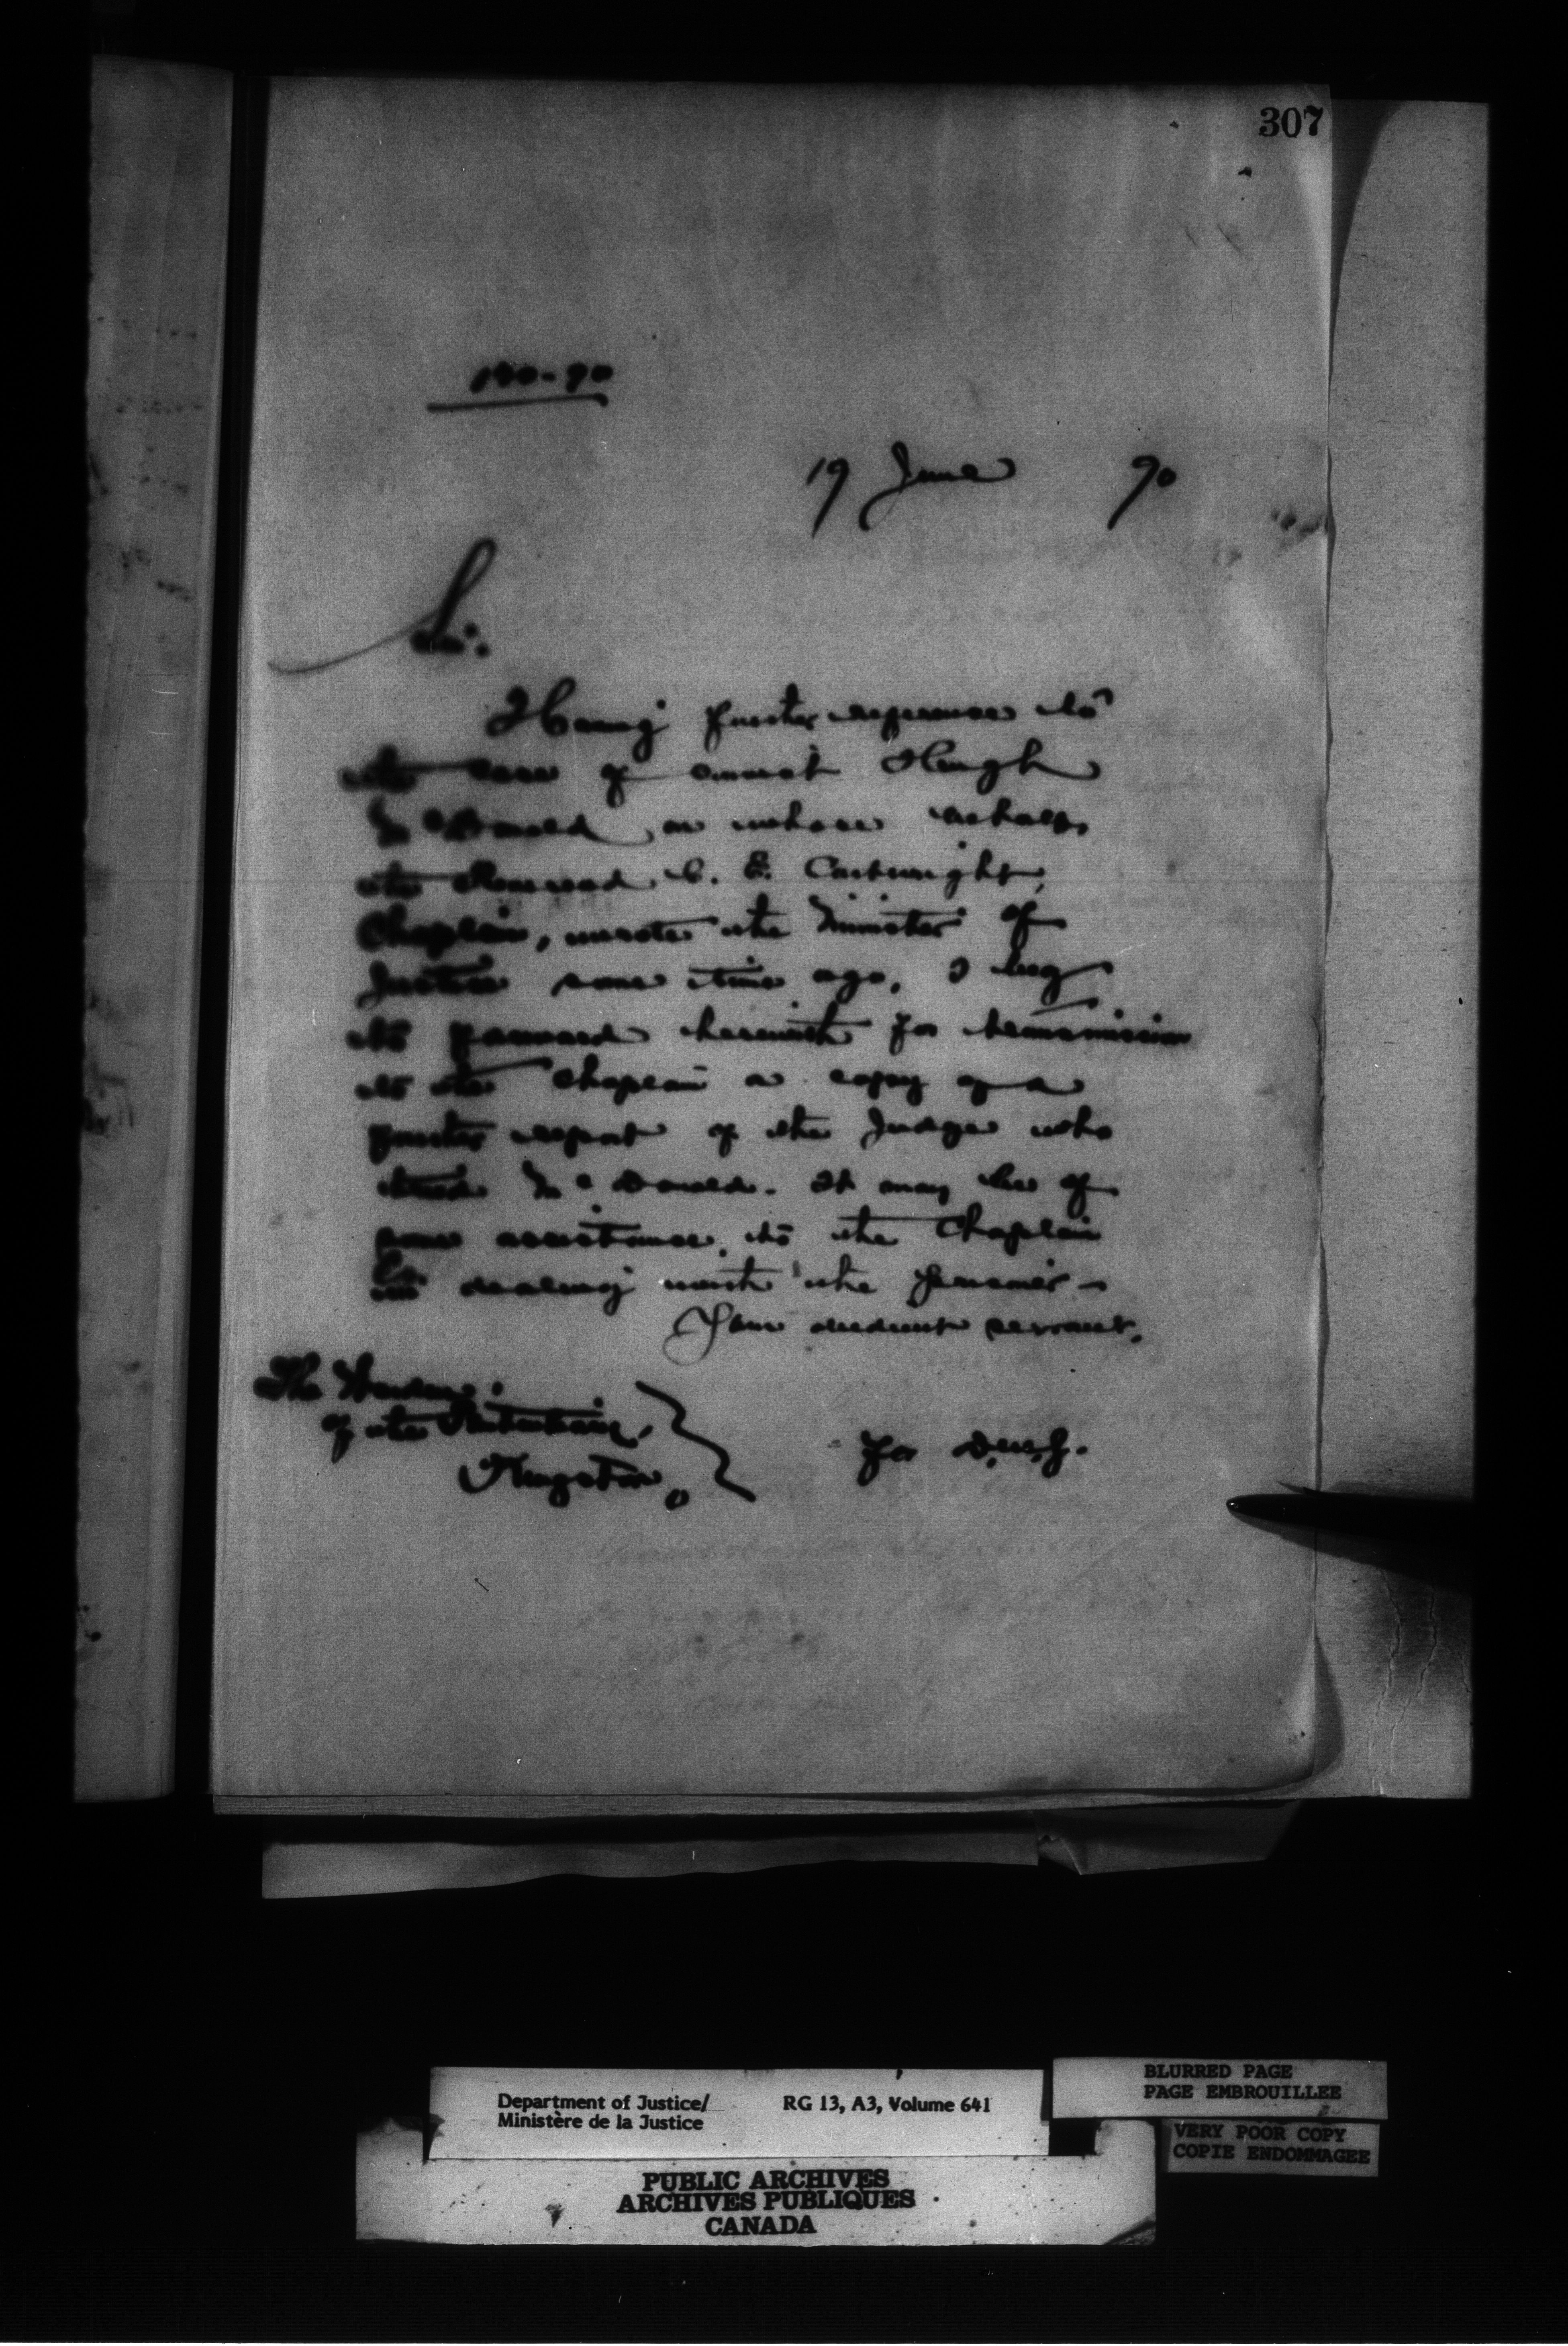 307
190-90
19 June 90
Sir:
Having further reference to
the case of convict Hugh
McDonald on whose behalf,
the Reverend C. E. Cartwright,
Chaplain, wrote the Minister of
Justice some time ago, I beg
to forward herewith for transmission
to the Chaplain a copy of a
further report of the Judge who
tried McDonald. It may be of
some assistance to the Chaplain
in dealing with the prisoner -
Your obedient servant,
The Warden
of the Penitentiary,
Kingston.
For D.M.J.
Department of Justice/
Ministère de la Justice
RG 13, A3, Volume 641
BLURRED PAGE
PAGE EMBROUILLEE
VERY POOR COPY
COPIE ENDOMMAGEE
PUBLIC ARCHIVES
ARCHIVES PUBLIQUES
CANADA